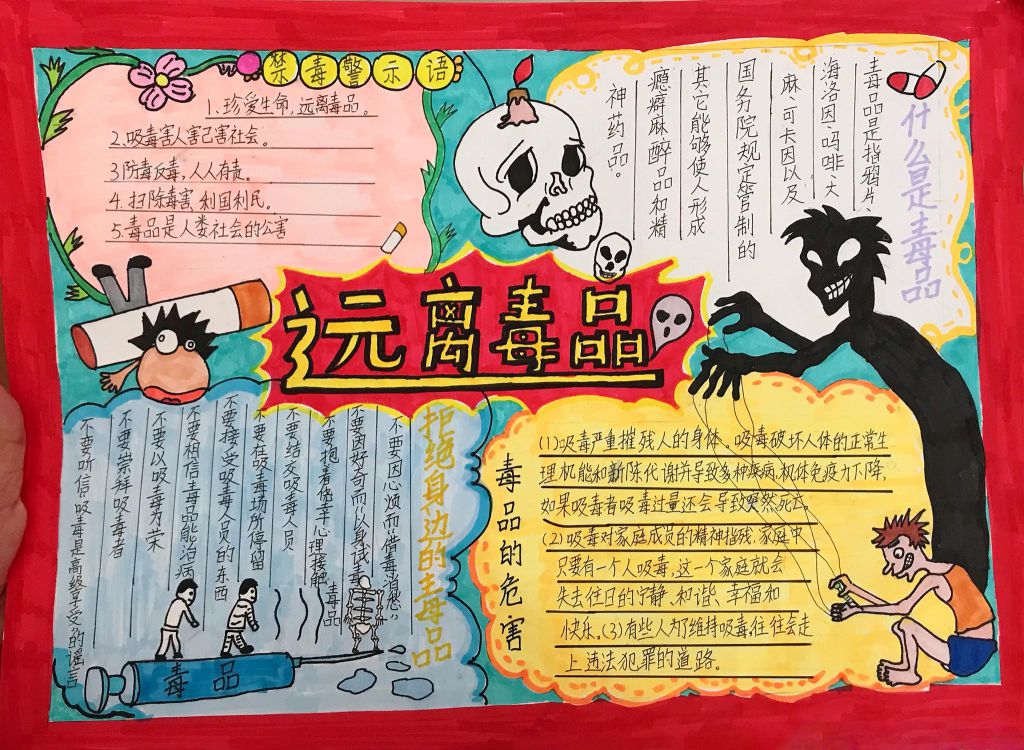 远离毒品
禁毒警示语
1.珍爱生命,远离毒品。
2.吸毒害人害己害社会。
3.防毒反毒,人人有责。
4.扫除毒害 利国利民。
5.毒品是人类社会的公害
什么是毒品
毒品是指鸦片、
海洛因、吗啡、大
麻、可卡因以及
国务院规定管制的
其它能够使人形成
瘾癖麻醉品和精
神药品。
拒绝身边的毒品
不要因心烦而“借毒消愁”
不要因好奇而“以身试毒”
不要抱着侥幸心理接触毒品
不要结交吸毒人员
不要在吸毒场所停留
不要接受吸毒人员的东西
不要相信毒品能治病
不要以吸毒为荣
不要崇拜吸毒者
不要听信吸毒是高级享受的谣言
毒品
毒品的危害
(1)吸毒严重摧残人的身体、吸毒破坏人体的正常生
理机能和新陈代谢并导致多种疾病,机体免疫力下降,
如果吸毒者吸毒过量还会导致突然死亡。
(2)吸毒对家庭成员的精神摧残.家庭中
只要有一个人吸毒,这一个家庭就会
失去往日的宁静、和谐、幸福和
快乐。(3)有些人为了维持吸毒,往往会走
上违法犯罪的道路。